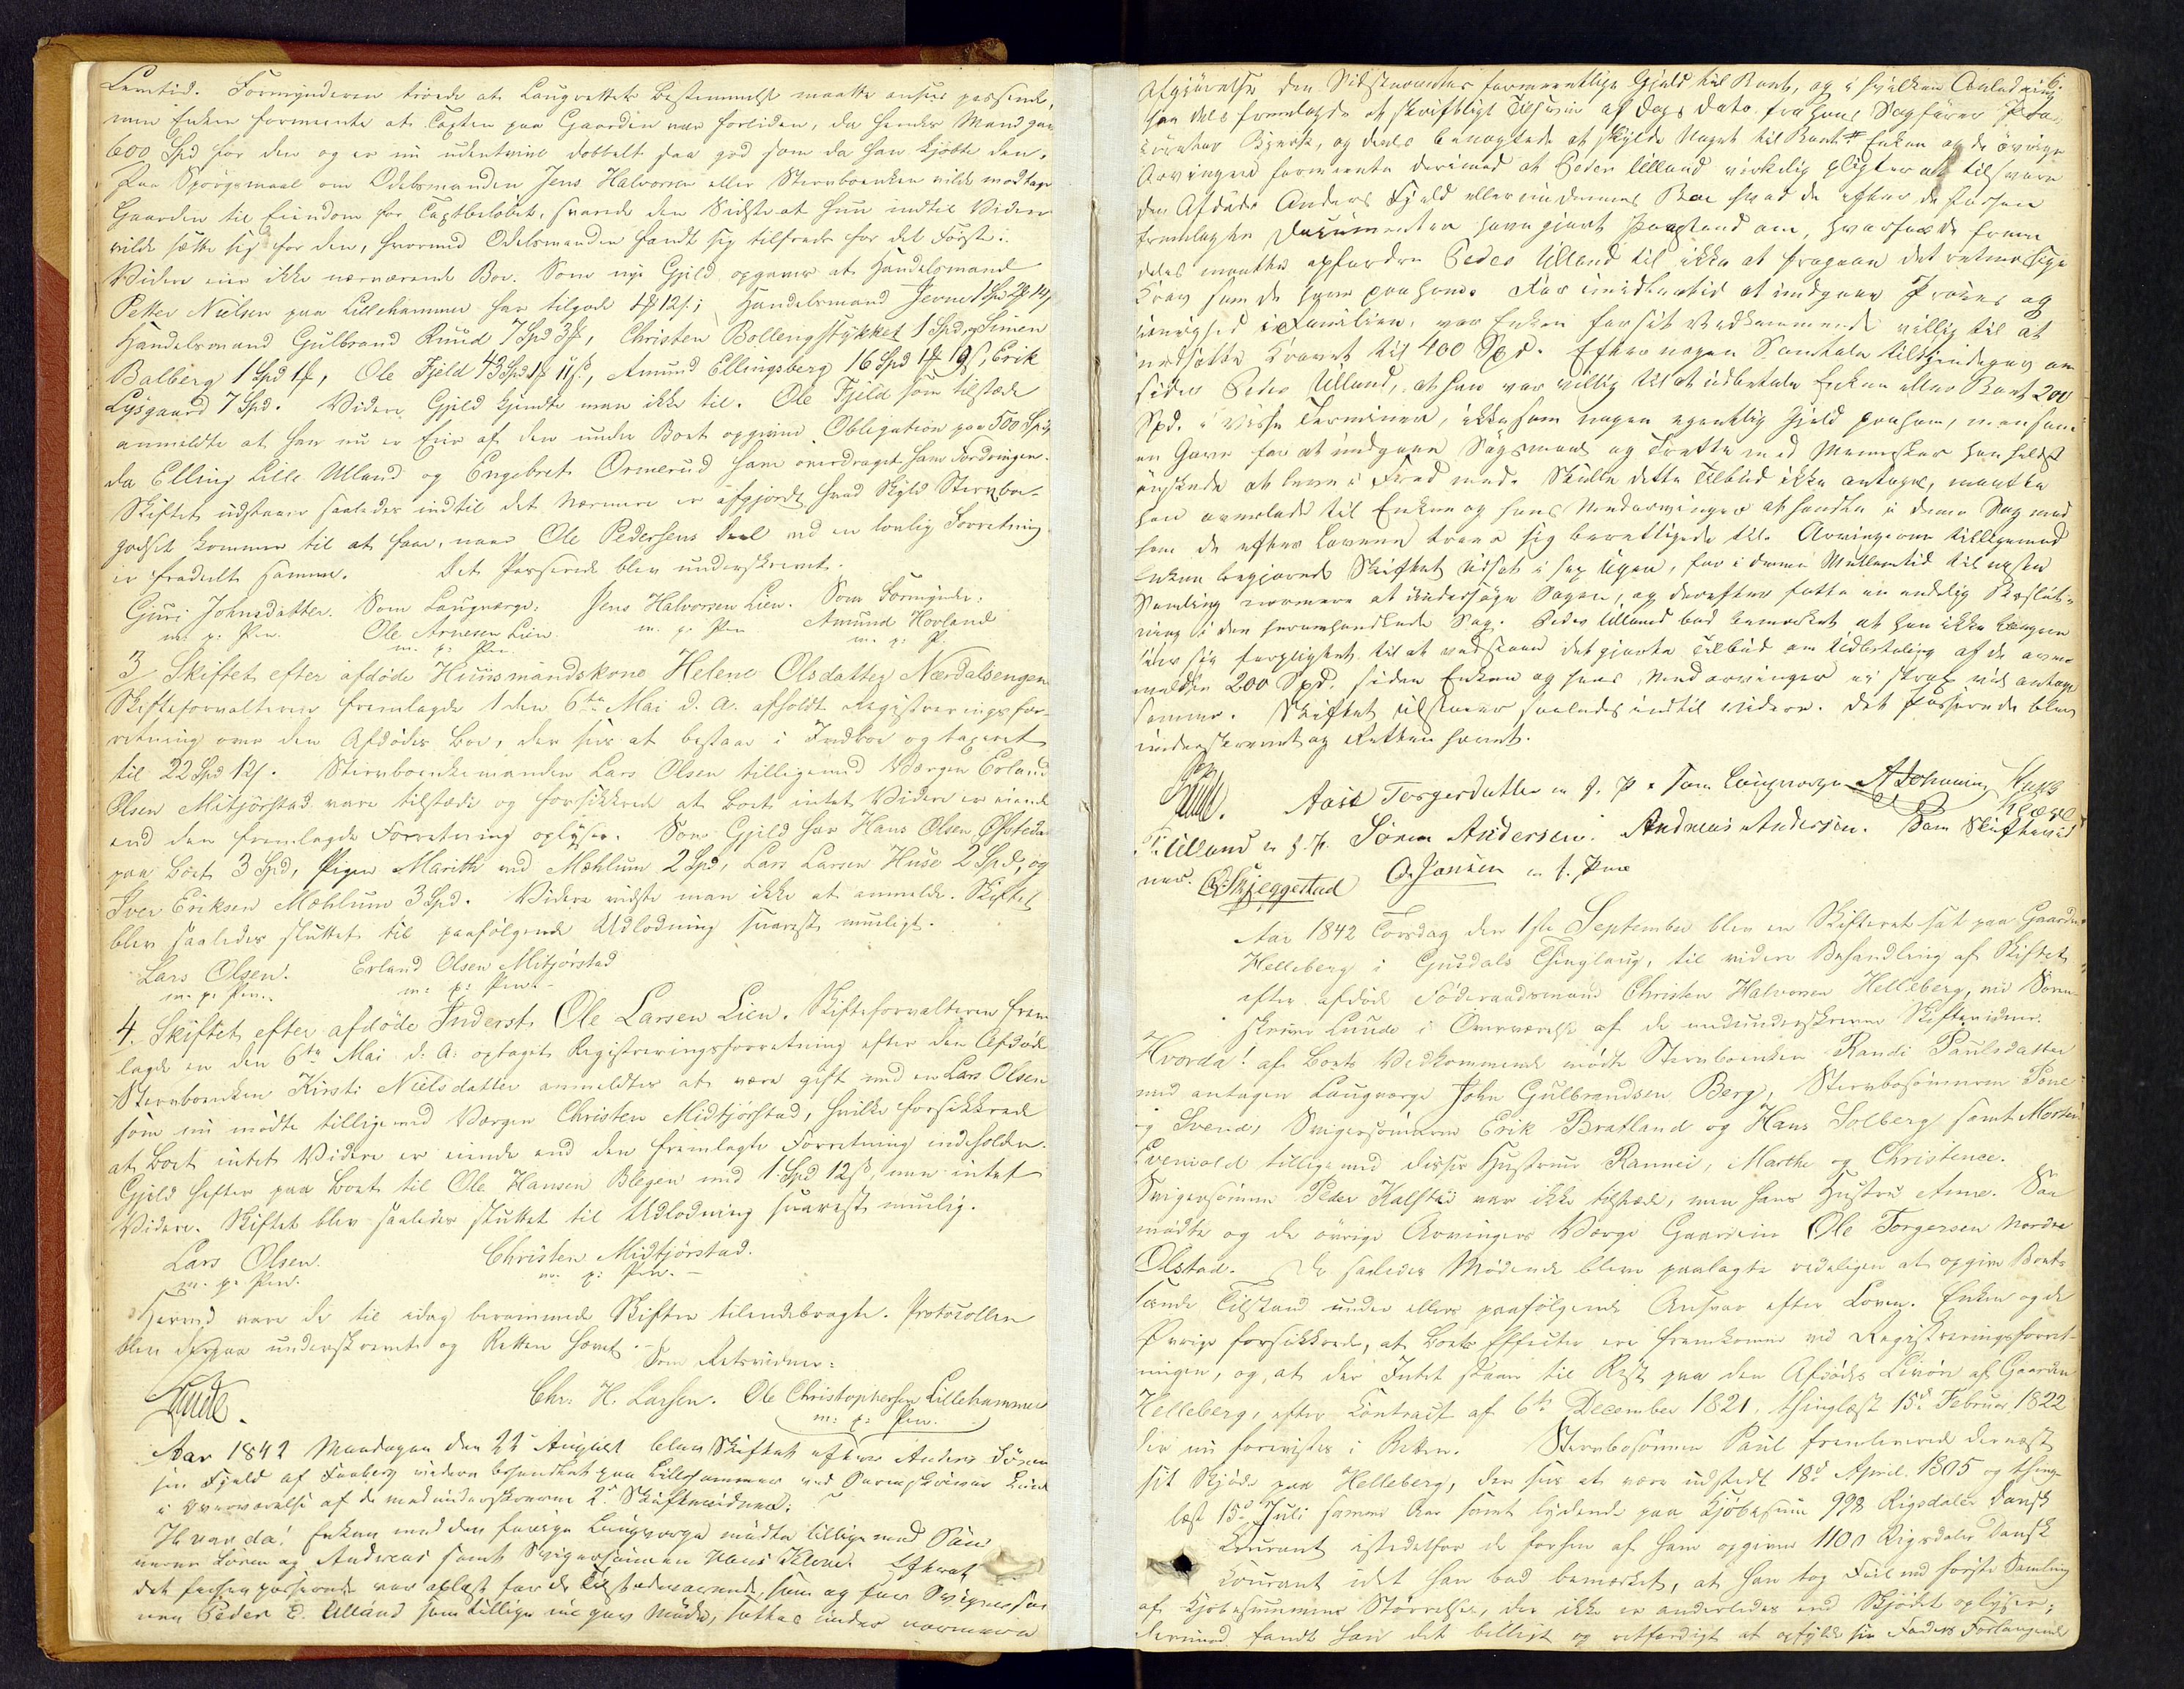 Levetid. Formynderen troede at Laugrettets Bestemmelse maatte ansees passende,
men Enken formeente at Taxten paa Gaarden var forliden, da hendes Mand gav
600 Spd for den og er nu udentvivl dobbelt saa god som da han kjøbte den.
Paa Spørgsmaal om Odelsmanden Jens Halvorsen eller Stervboenken vilde modtage
Gaarden til Eiendom for Taxtbeløbet, svarede den Sidste at hun indtil Videre
vilde sætte sig for den, hvormed Odelsmanden fandt sig tilfreds for det Første.
Videre eier ikke nærværende Boe. Som nye Gjeld opgaves at Handelsmand
Petter Nielsen paa Lillehammer har tilgode 4 12 s; Handelsmand Jevne 1 Spd 2 14 s
Handelsmand Gulbrand Ruud 7 Spd 3, Christen Bollengstykket 1 Spd, Simen
Balberg 1 Spd 1, Ole Fjeld 43 Spd 1 11 s, Amund Ellingsberg 16 Spd 1 19 s, Erik
Lysgaard 7 Spd. Videre Gjeld kjendte man ikke til. Ole Fjeld som tilstæde
anmeldte at han nu er Eier af den under Boet opgivne Obligation paa 500 Spd
da Elling Lille Ulland og Engebret Ormerud have overdraget ham Fordringen.
Skiftet udstaaer saaledes indtil det nærmere er afgjordt hvad Skyld Stervboe-
godset kommer til at faae, naar Ole Pedersens Deel ved en lovlig Forretning
er fradeelt samme. Det Passerede blev underskrevet.
Guri Johnsdatter. Som Laugværge: Jens Halvorsen Lien. Som Formynder:
m. p. Pen. Ole Arnesen Lien m. p. Pen Amund Hovland
m. p. Pen. m. p. P.
3 Skiftet efter afdøde Huusmandskone Helene Olsdatter Nærdalsengen
Skifteforvalteren fremlagde 1 den 6te Mai d. A. afholdt Registreringsfor-
retning over den Afdødes Boe, der sees at bestaae i Indboe og taxeret
til 22 Spd 12 s. Stervboenkemanden Lars Olsen tilligemed Værgen Erland
Olsen Mitjørstad vare tilstæde og forsikkrede at Boet intet Videre er eiende
end den fremlagde Forretning oplyser. Som Gjeld har Hans Olsen Øfstedal
paa Boet 3 Spd, Pigen Marith ved Mæhlum 2 Spd, Lars Larsen Huse 2 Spd, og
Iver Eriksen Mæhlum 3 Spd. Videre vidste man ikke at anmelde. Skiftet
blev saaledes sluttet til paafølgende Udlodning snarest mueligt.
Lars Olsen. Erland Olsen Mitjørstad
m. p. Pen. m: p: Pen.
4. Skiftet efter afdøde Inderst Ole Larsen Lien. Skifteforvalteren frem
lagde en den 6te Mai d. A. optaget Registreringsforretning efter den Afdøde
Stervboenken Kirsti Nielsdatter anmeldtes at være gift med en Lars Olsen
som nu mødte tilligemed Værgen Christen Midtjørstad, hvilke forsikkrede
at Boet intet Videre er eiende end den fremlagte Forretning indeholder.
Gjeld hefter paa Boet til Ole Hansen Blegen med 1 Spd 12 s, men intet
Videre. Skiftet blev saaledes sluttet til Udlodning snarest muelig.
Lars Olsen. Christen Midtjørstad.
m. p. Pen. m. p: Pen.
Hermed vare de til idag berammede Skifter tilendebragte. Protocollen
blev derpaa underskrevet og Retten hævet.
Som Retsvidner:
Lunde. Chr: H. Larsen. Ole Christophersen Lillehammer
m: p: Pen.
Aar 1842 Mandagen den 22de August blev Skiftet efter Anders Søren
sen Fjeld af Faaberg videre behandlet paa Lillehammer ved Sorenskriver Lunde
i Overværelse af de medunderskrevne 2de Skiftevidner.
Hvorda! Enken med den forrige Laugværge mødte tilligemed Søn
nerne Søren og Andreas samt Svigersønnen Hans Kleve. Efterat
det forhen passerede var oplæst for de Tilstædeværende, som og for Svigerson
nen Peder E. Ulland som tillige nu gav Møde, sattes under nærmere
6.
Afgjørelse den Sidstnævntes formeentlige Gjeld til Boet, og i hvilken Anledning
han dels fremlagde et skriftligt Tilsvar af Dags Dato fra hans Sagfører Pro
curator Bjerck, og deels benægtede at skylde Noget til Boet. Enken og de øvrige
Arvinger formeente derimod at Peder Ulland virkelig pligter at tilsvare
den Afdøde Anders Fjeld eller nu dennes Boe hvad de efter de forhen
fremlagte Documenter have gjort Paastand om, hvorfor de frem
deles maatte opfordre Peder Ulland til ikke at fragaae det retmessige
Krav som de have paa ham. For imidlertid at undgaae Proces og
ueenighed i Familien, var Enken for sit Vedkommende villig til at
nedsætte Kravet til 400 Spd. Efter nogen Samtale tilkjendegav om
sider Peder Ulland, at han var villig til at udbetale Enken eller Boet 200
Spd. i visse Terminer, ikke som nogen egentlig Gjeld paa ham, men som
en Gave for at undgaae Søgsmaal og Trætte med Mennesker han helst
ønskede at leve i Fred med. Skulde dette Tilbud ikke antages, maatte
han overlade til Enken og hans Medarvinger at handle i denne Sag med
ham de efter Lovene troe sig berettigede til. Arvingerne tilligemed
Enken begjærede Skiftet udsat i sex Uger, for i denne Mellemtid til næste
Samling nærmere at undersøge Sagen, og derefter fatte en endelig Beslut-
ning i den heromhandlede Sag. Peder Ulland bad bemærket at han ikke længere
siden sig forpligtet til at vedstaae det gjorte Tilbud om Udbetaling af de anme
meldte 200 Spd. siden Enken og hans Medarvinger ei strax vil antage
samme. Skiftet udstaaer saaledes indtil videre. Det Passerede blev
underskrevet og Retten hævet.
Lunde. Aase Torgersdatter m. f. P. Som Laugværge A Johannes Hans Kleve
P. Ulland m. f. P. Søren Andersen. Andreas Andersen. Som Skiftevid
ner. O. Skjeggestad O. Jansen m. f. Pen
Aar 1842 Torsdag den 1ste September blev en Skifteret sat paa Gaarden
Helleberg i Gusdals Thinglaug, til videre Behandling af Skiftet
efter afdøde Føderaadsmand Christen Halvorsen Helleberg, ved Soren-
skriver Lunde i Overværelse af de medunderskrevne Skiftevidner.
Hvorda! af Boets Vedkommende mødte Stervboenken Randi Paulsdatter
med antagen Laugværge John Gulbrandsen Berg, Stervbosønnerne Poul
og Svend, Svigersønnerne Erik Bratland og Hans Solberg samt Morten
Svenvold tilligemed disses Hustruer Rannei, Marthe og Christence.
Svigersønnen Peder Kalstad var ikke tilstæde, men hans Hustru Anne. Saa
mødte og de øvrige Arvingers Værge Gaardeier Ole Torgersen Nordre
Olstad. De saaledes Mødende bleve paalagte redeligen at opgive Boets
sande Tilstand under ellers paafølgende Ansvar efter Loven. Enken og de
Øvrige forsikkrede, at Boets Effecter ere fremkomne ved Registreringsforret-
ningen, og, at der Intet staaer til Rest paa den Afdødes Livøre af Gaarden
Helleberg, efter Contract af 6te December 1821, thinglæst 15de Februar 1822
der nu forevistes i Retten. Stervbosønnen Paul fremleverede dernæst
sit Skjøde paa Helleberg, der sees at være udstedt 18de April 1805 og thing-
læst 15de Juli samme Aar samt lydende paa Kjøbesum 998 Rigsdaler Dansk
Courant istedetfor de forhen af ham opgivne 1100 Rigsdaler Dansk
Courant idet han bad bemærket, at han tog Feil ved første Samling
af Kjøbesummens Størrelse, der ikke er anderledes end Skjødet oplyser;
derimod fandt han det billigt og retfærdigt at opfylde sin Faders Forlangende